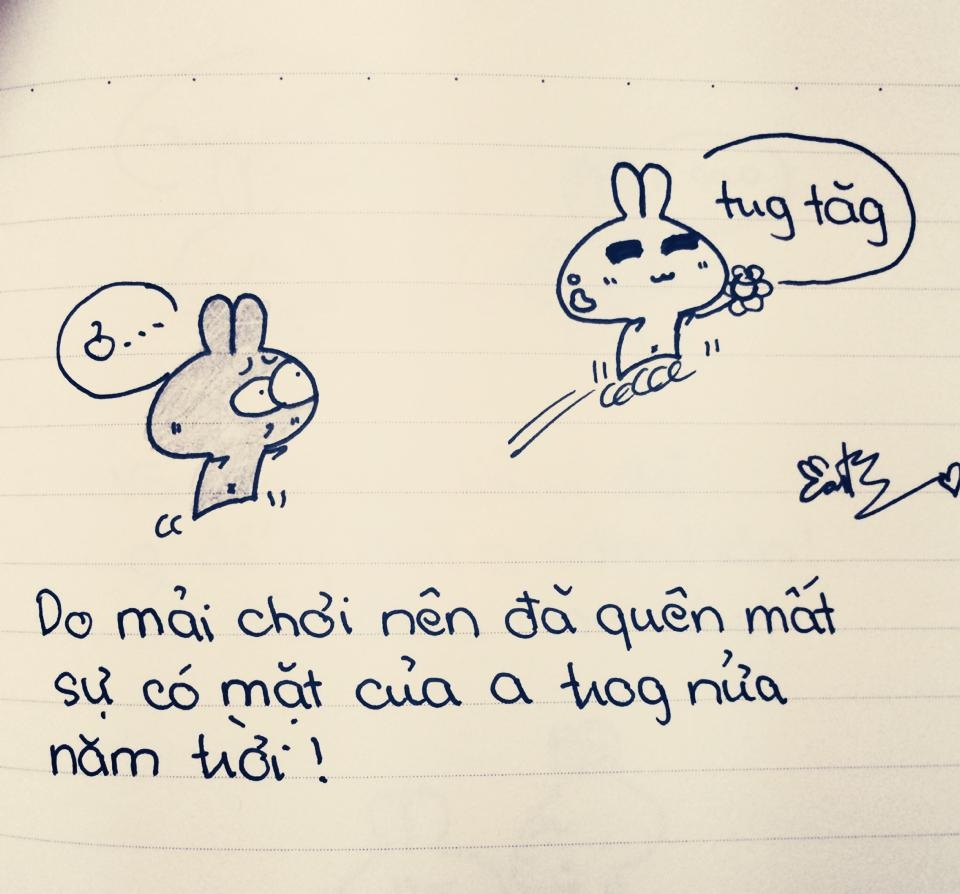 tug tăg
Do mải chơi nên đã quên mất
sự có mặt của a trog nửa
năm trời !